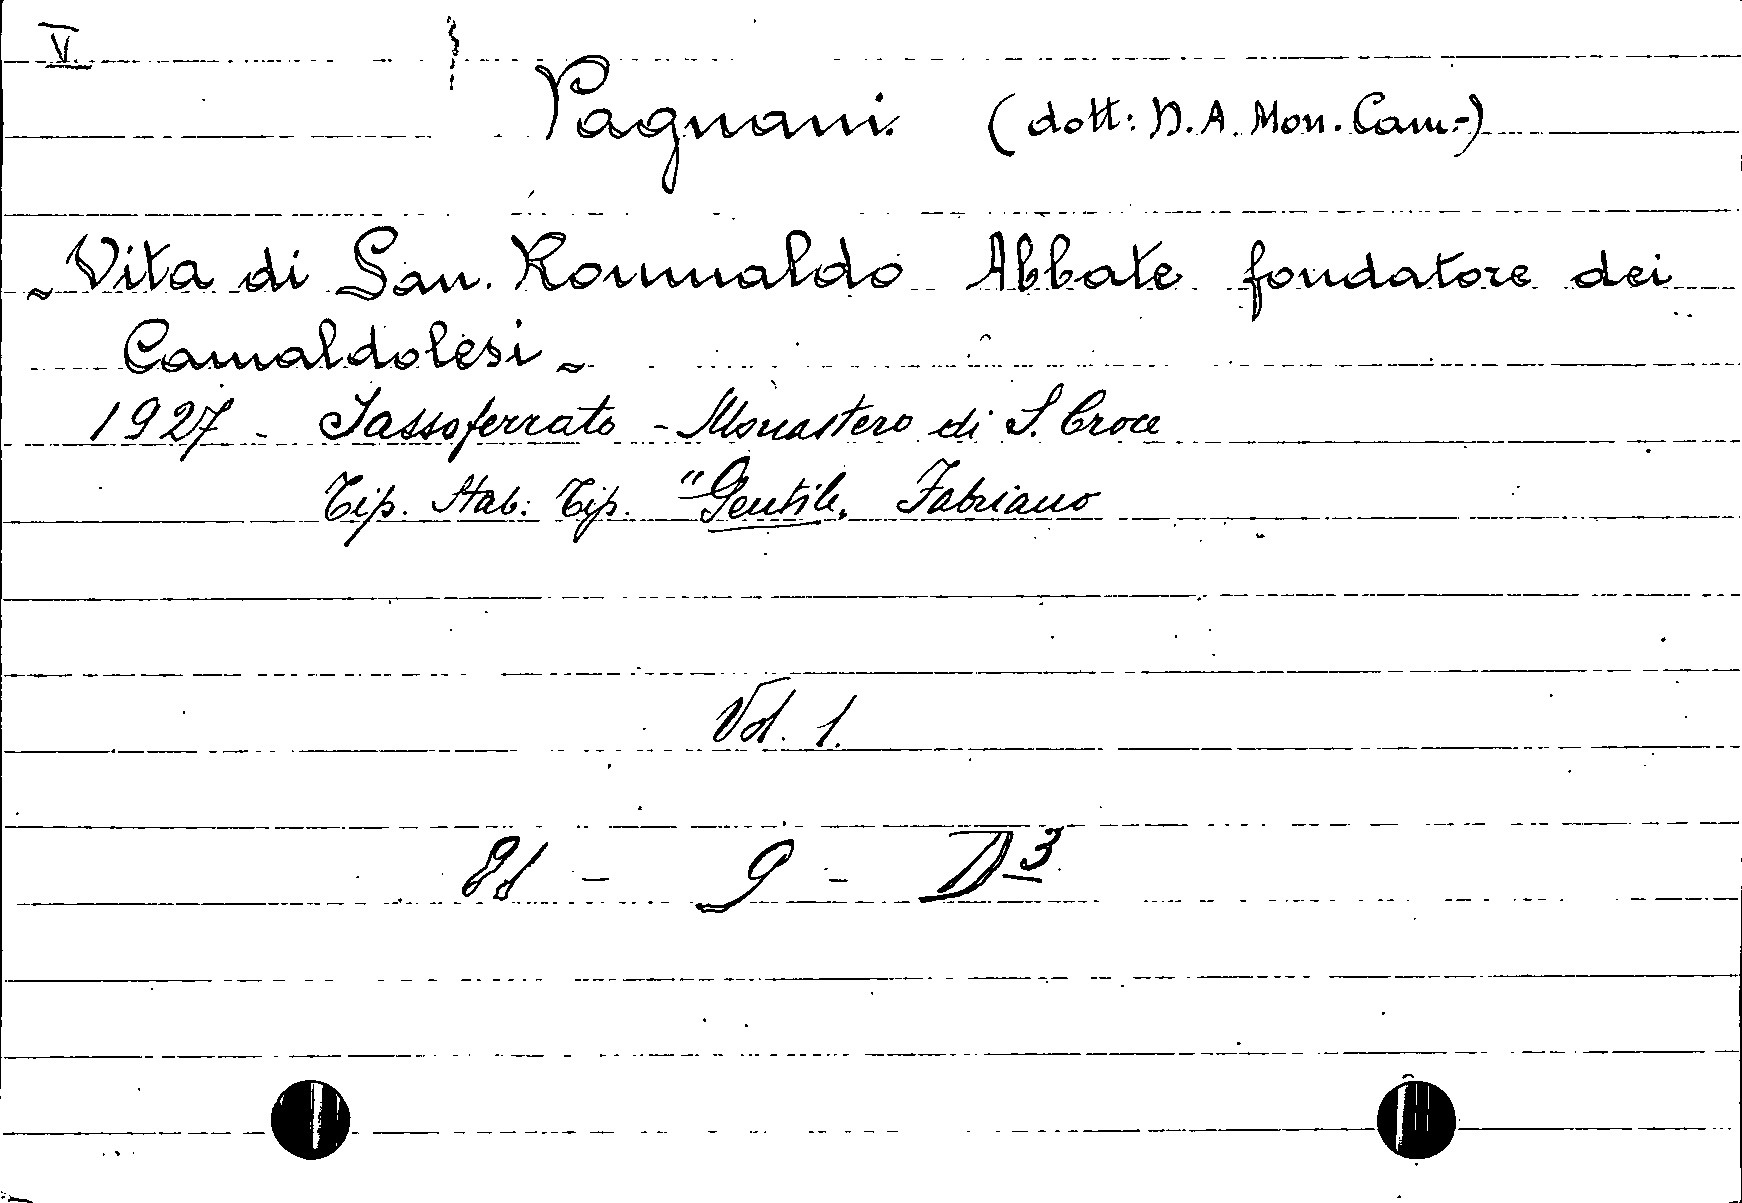 V.
Pagnani (dott: D. A. Mon. Cam.-)
~ Vita di San Romualdo Abbate fondatore dei
Camaldolesi ~
1927 - Sassoferrato - Monastero di S. Croce
Tip. Stab: Tip. "Gentile" Fabriano
Vol. 1.
81 - 9 - D 3